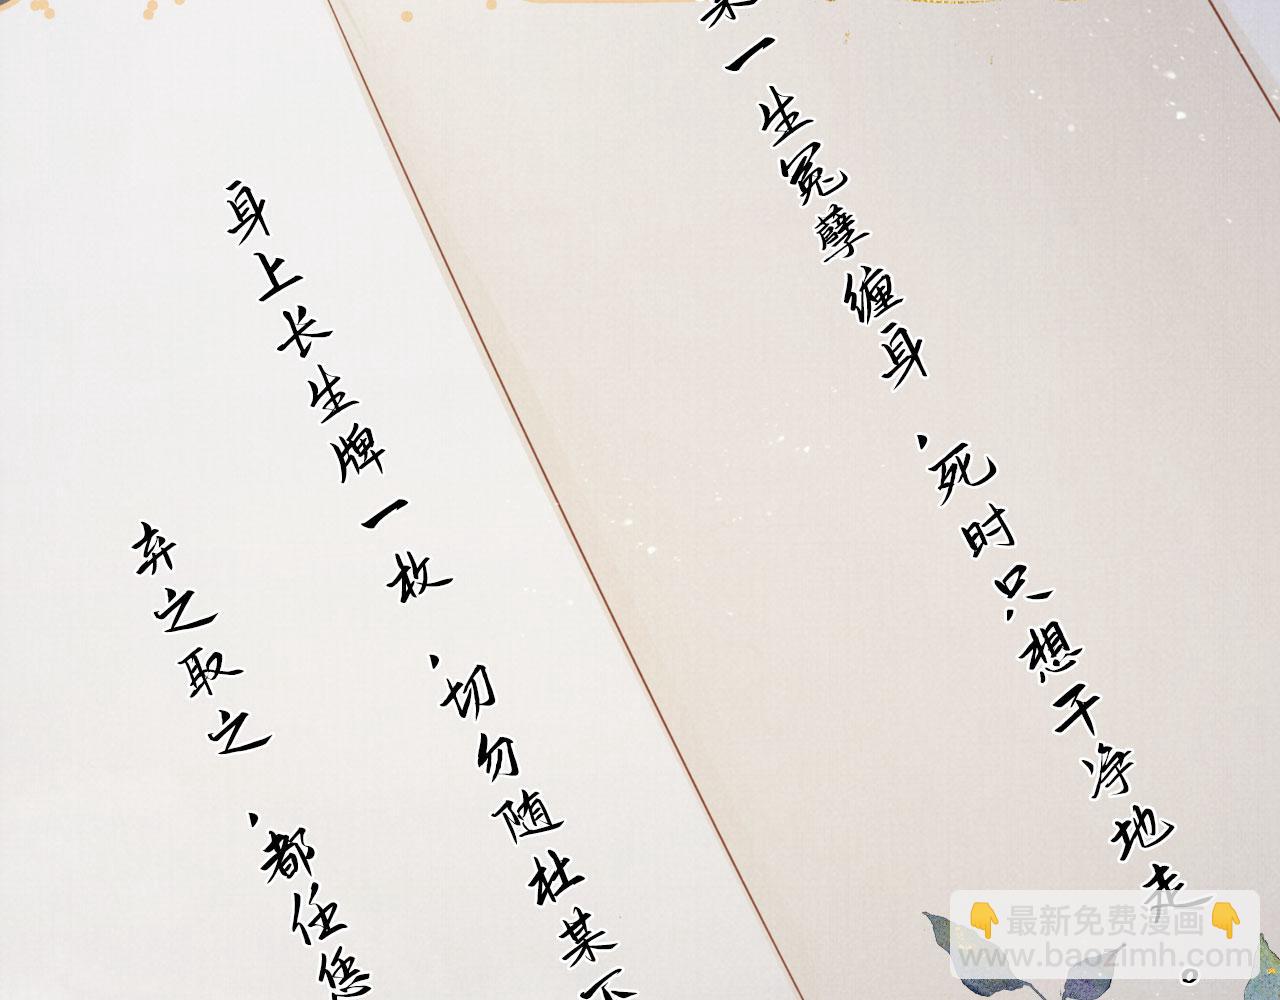 某一生冤孽缠身，死时只想干净地走。
身上长生牌一枚，切勿随杜某下
弃之取之，都任恁
👇最新免费漫画👇
www.baozimh.com